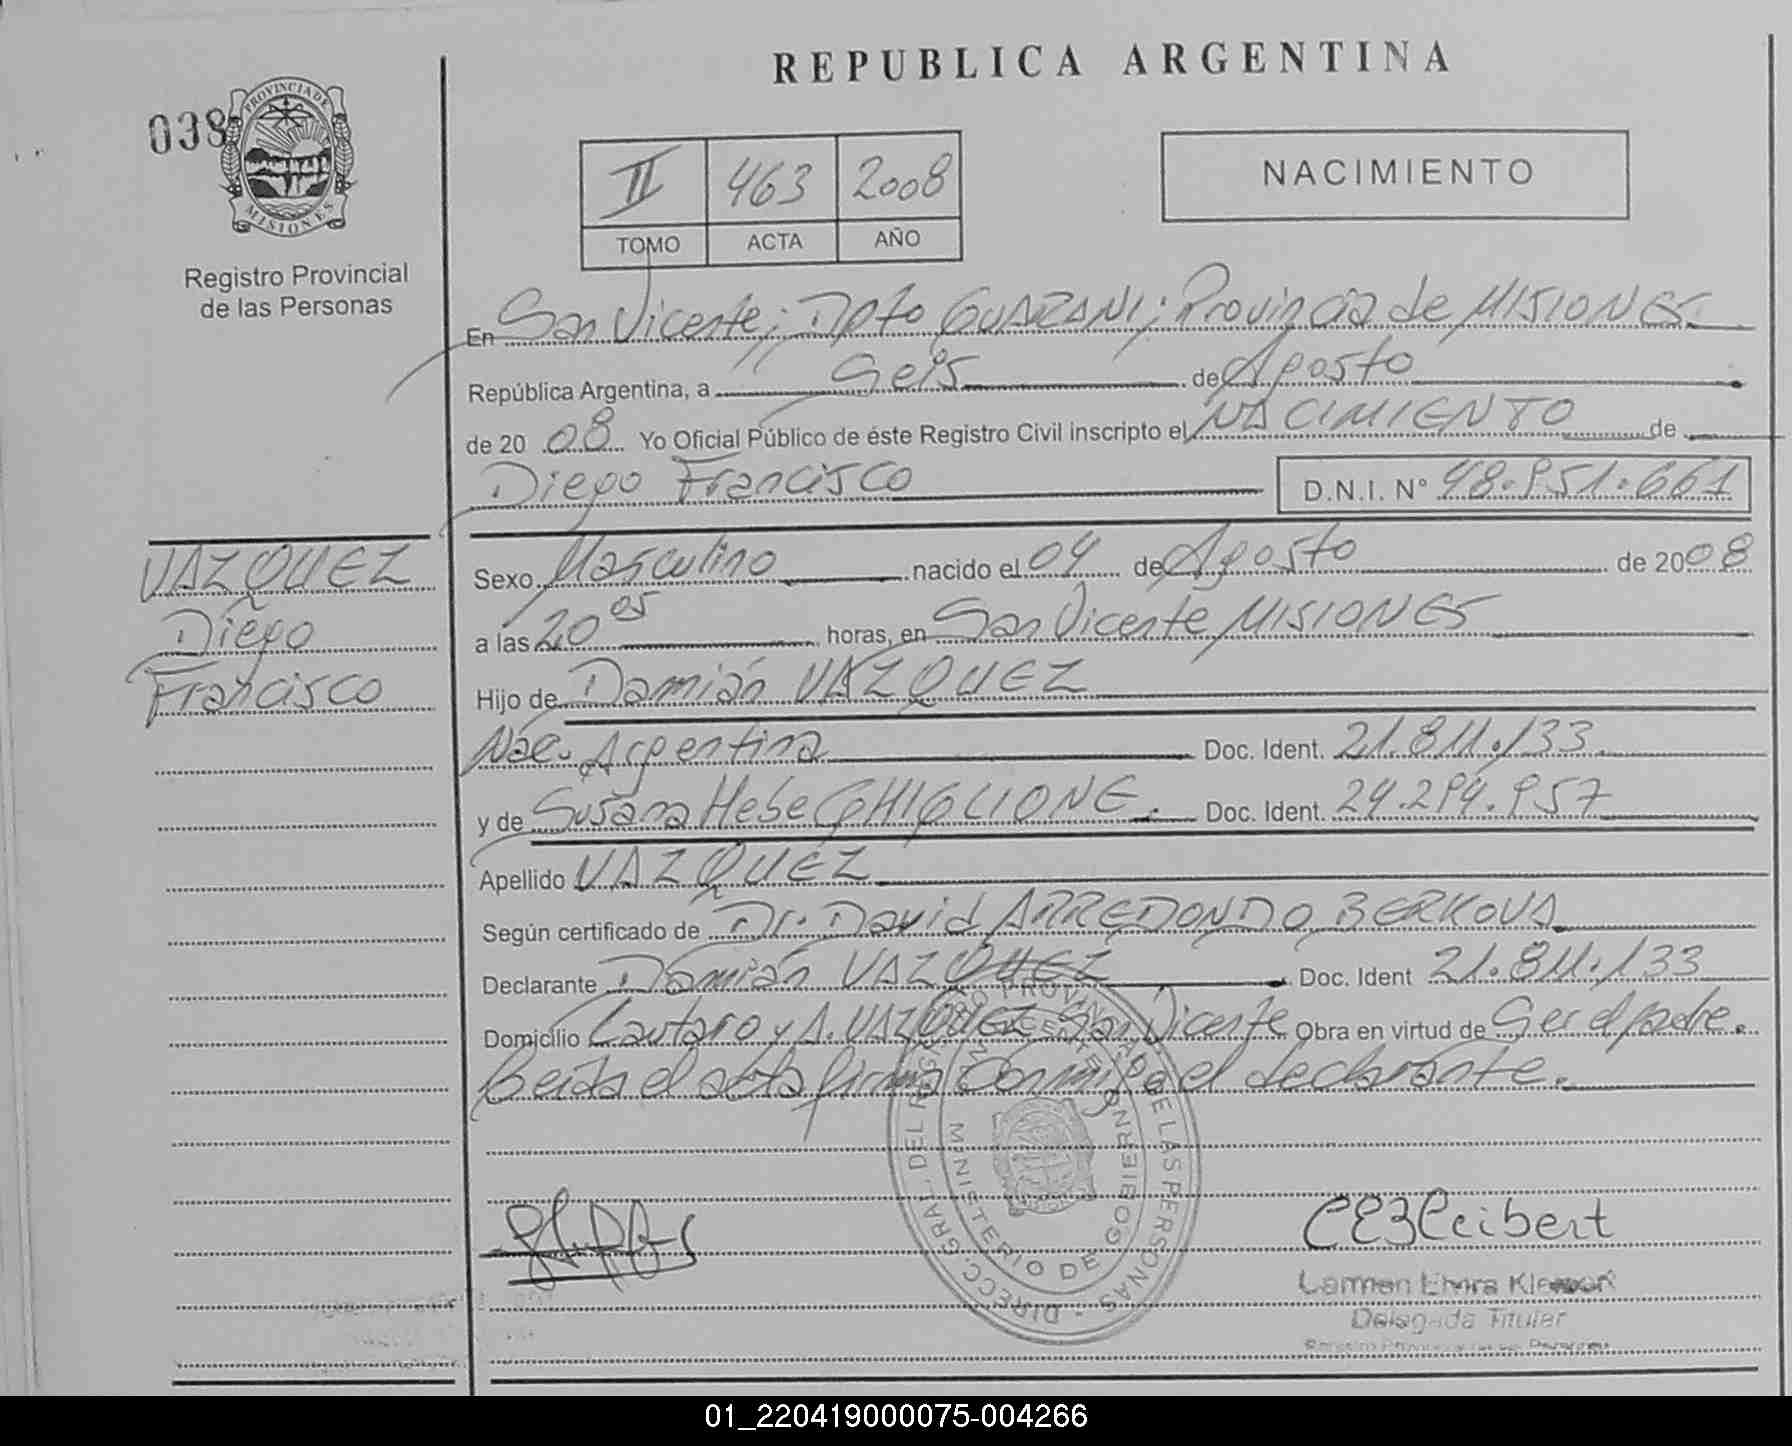 REPUBLICA ARGENTINA
038
PROVINCIA DE
MISIONES
Registro Provincial
de las Personas
II 463 2008
TOMO ACTA AÑO
NACIMIENTO
En San Vicente; Dpto GUARANI; Provincia de MISIONES
República Argentina, a Seis de Agosto
de 2008 Yo Oficial Público de éste Registro Civil inscripto el NACIMIENTO de
Diego Francisco D.N.I. N° 48.951.661
VAZQUEZ
Diego
Francisco
Sexo Masculino nacido el 04 de Agosto de 2008
a las 20 05 horas, en San Vicente MISIONES
Hijo de Damián VAZQUEZ
Nac. Argentina Doc. Ident. 21.811.133
y de Susana Hebe GHIGLIONE. Doc. Ident. 24.294.957
Apellido VAZQUEZ
Según certificado de Dr. David ARREDONDO BERKOVA
Declarante Damián VAZQUEZ Doc. Ident 21.811.133
Domicilio Lautaro y A. VAZQUEZ San Vicente Obra en virtud de Ser el padre.
Leida el acta firma Conmigo el declarante.
DIRECC. GRAL. DEL REGISTRO PROVINCIAL DE LAS PERSONAS
MINISTERIO DE GOBIERNO
Carmen Elvira
Delegada Titular
01_220419000075-004266